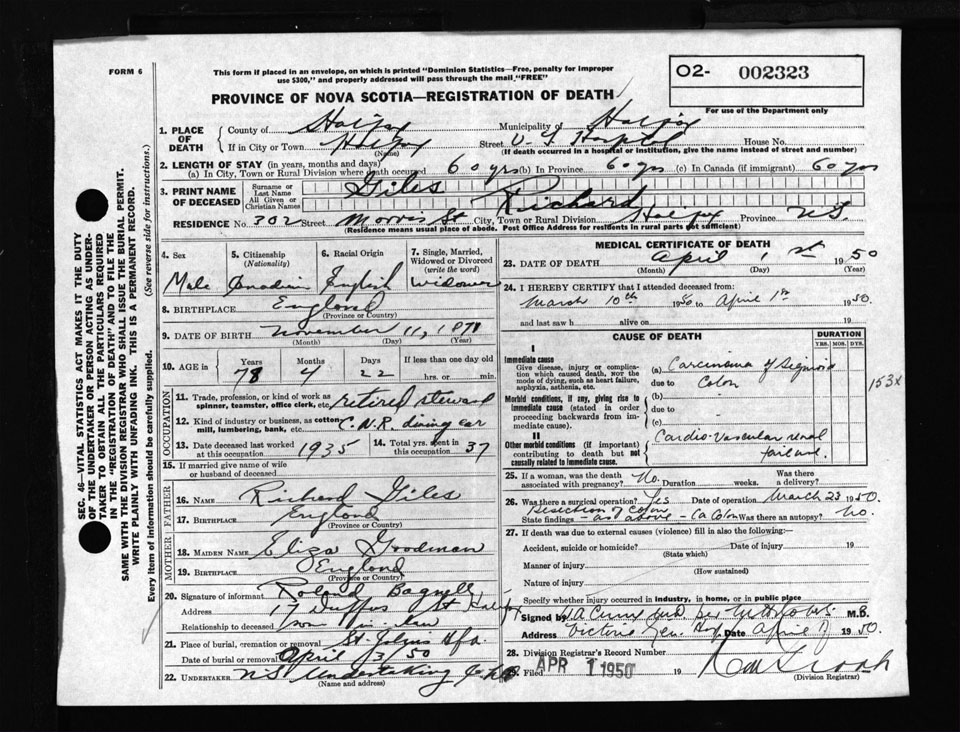 FORM 6
This form if placed in an envelope, on which is printed "Dominion Statistics—Free, penalty for improper
use $300," and properly addressed will pass through the mail "FREE"
O2- 002323
For use of the Department only
PROVINCE OF NOVA SCOTIA—REGISTRATION OF DEATH
1. PLACE OF DEATH
County of Halifax Municipality of Halifax
If in City or Town Halifax Street V. G. Hospital House No.
(Name) (If death occurred in a hospital or institution, give the name instead of street and number)
2. LENGTH OF STAY (in years, months and days)
(a) In City, Town or Rural Division where death occurred 60 yrs (b) In Province 60 yrs (c) In Canada (if immigrant) 60 yrs
3. PRINT NAME OF DECEASED
Surname or Last Name Giles
All Given or Christian Names Richard
RESIDENCE No. 302 Street Morris St City, Town or Rural Division Halifax Province N.S.
(Residence means usual place of abode. Post Office Address for residents in rural parts not sufficient)
4. Sex 5. Citizenship (Nationality) 6. Racial Origin 7. Single, Married, Widowed or Divorced (write the word)
Male Canadian English Widower
8. BIRTHPLACE England
(Province or Country)
9. DATE OF BIRTH November 11, 1871
(Month) (Day) (Year)
10. AGE in Years Months Days If less than one day old
78 4 22 hrs. or min.
OCCUPATION
11. Trade, profession, or kind of work as spinner, teamster, office clerk, etc. retired steward
12. Kind of industry or business, as cotton mill, lumbering, bank, etc. C.N.R. dining car
13. Date deceased last worked at this occupation 1935 14. Total yrs. spent in this occupation 37
15. If married give name of wife or husband of deceased
FATHER
16. NAME Richard Giles
17. BIRTHPLACE England
(Province or Country)
MOTHER
18. MAIDEN NAME Eliza Goodman
19. BIRTHPLACE England
(Province or Country)
20. Signature of informant Roland Bagnell
Address 17 Duffus St Halifax
Relationship to deceased son in law
21. Place of burial, cremation or removal St. Johns Hfx.
Date of burial or removal April 3/50
22. UNDERTAKER N.S Undertaking
(Name and address)
MEDICAL CERTIFICATE OF DEATH
23. DATE OF DEATH April 1st 1950
(Month) (Day) (Year)
24. I HEREBY CERTIFY that I attended deceased from:
March 10th 1950 to April 1st 1950.
and last saw h alive on 19
CAUSE OF DEATH
DURATION
YRS. MOS. DYS.
I
Immediate cause
Give disease, injury or complication which caused death, NOT the mode of dying, such as heart failure, asphyxia, asthenia, etc.
(a) Carcinoma of Sigmoid
due to Colon
153x
Morbid conditions, if any, giving rise to immediate cause (stated in order proceeding backwards from immediate cause).
(b) -
due to -
(c) -
II
Other morbid conditions (if important) contributing to death but not causally related to immediate cause.
Cardio-Vascular renal
failure.
25. If a woman, was the death associated with pregnancy? No. Duration weeks. Was there a delivery?
26. Was there a surgical operation? Yes Date of operation March 23 1950.
Resection of Colon
State findings - as above - Ca Colon Was there an autopsy? No.
27. If death was due to external causes (violence) fill in also the following:—
Accident, suicide or homicide? Date of injury 19
(State which)
Manner of injury
(How sustained)
Nature of injury
Specify whether injury occurred in industry, in home, or in public place
Signed by M.B.
Address Victoria Gen. Hosp. Date April 1950
28. Division Registrar's Record Number
Filed APR 1 1950 19
(Division Registrar)
SEC. 46—VITAL STATISTICS ACT MAKES IT THE DUTY
OF THE UNDERTAKER OR PERSON ACTING AS UNDER-
TAKER TO OBTAIN ALL THE PARTICULARS REQUIRED
IN THE "REGISTRATION OF DEATH" AND TO FILE THE
SAME WITH THE DIVISION REGISTRAR WHO SHALL ISSUE THE BURIAL PERMIT.
WRITE PLAINLY WITH UNFADING INK. THIS IS A PERMANENT RECORD.
Every item of information should be carefully supplied. (See reverse side for instructions.)